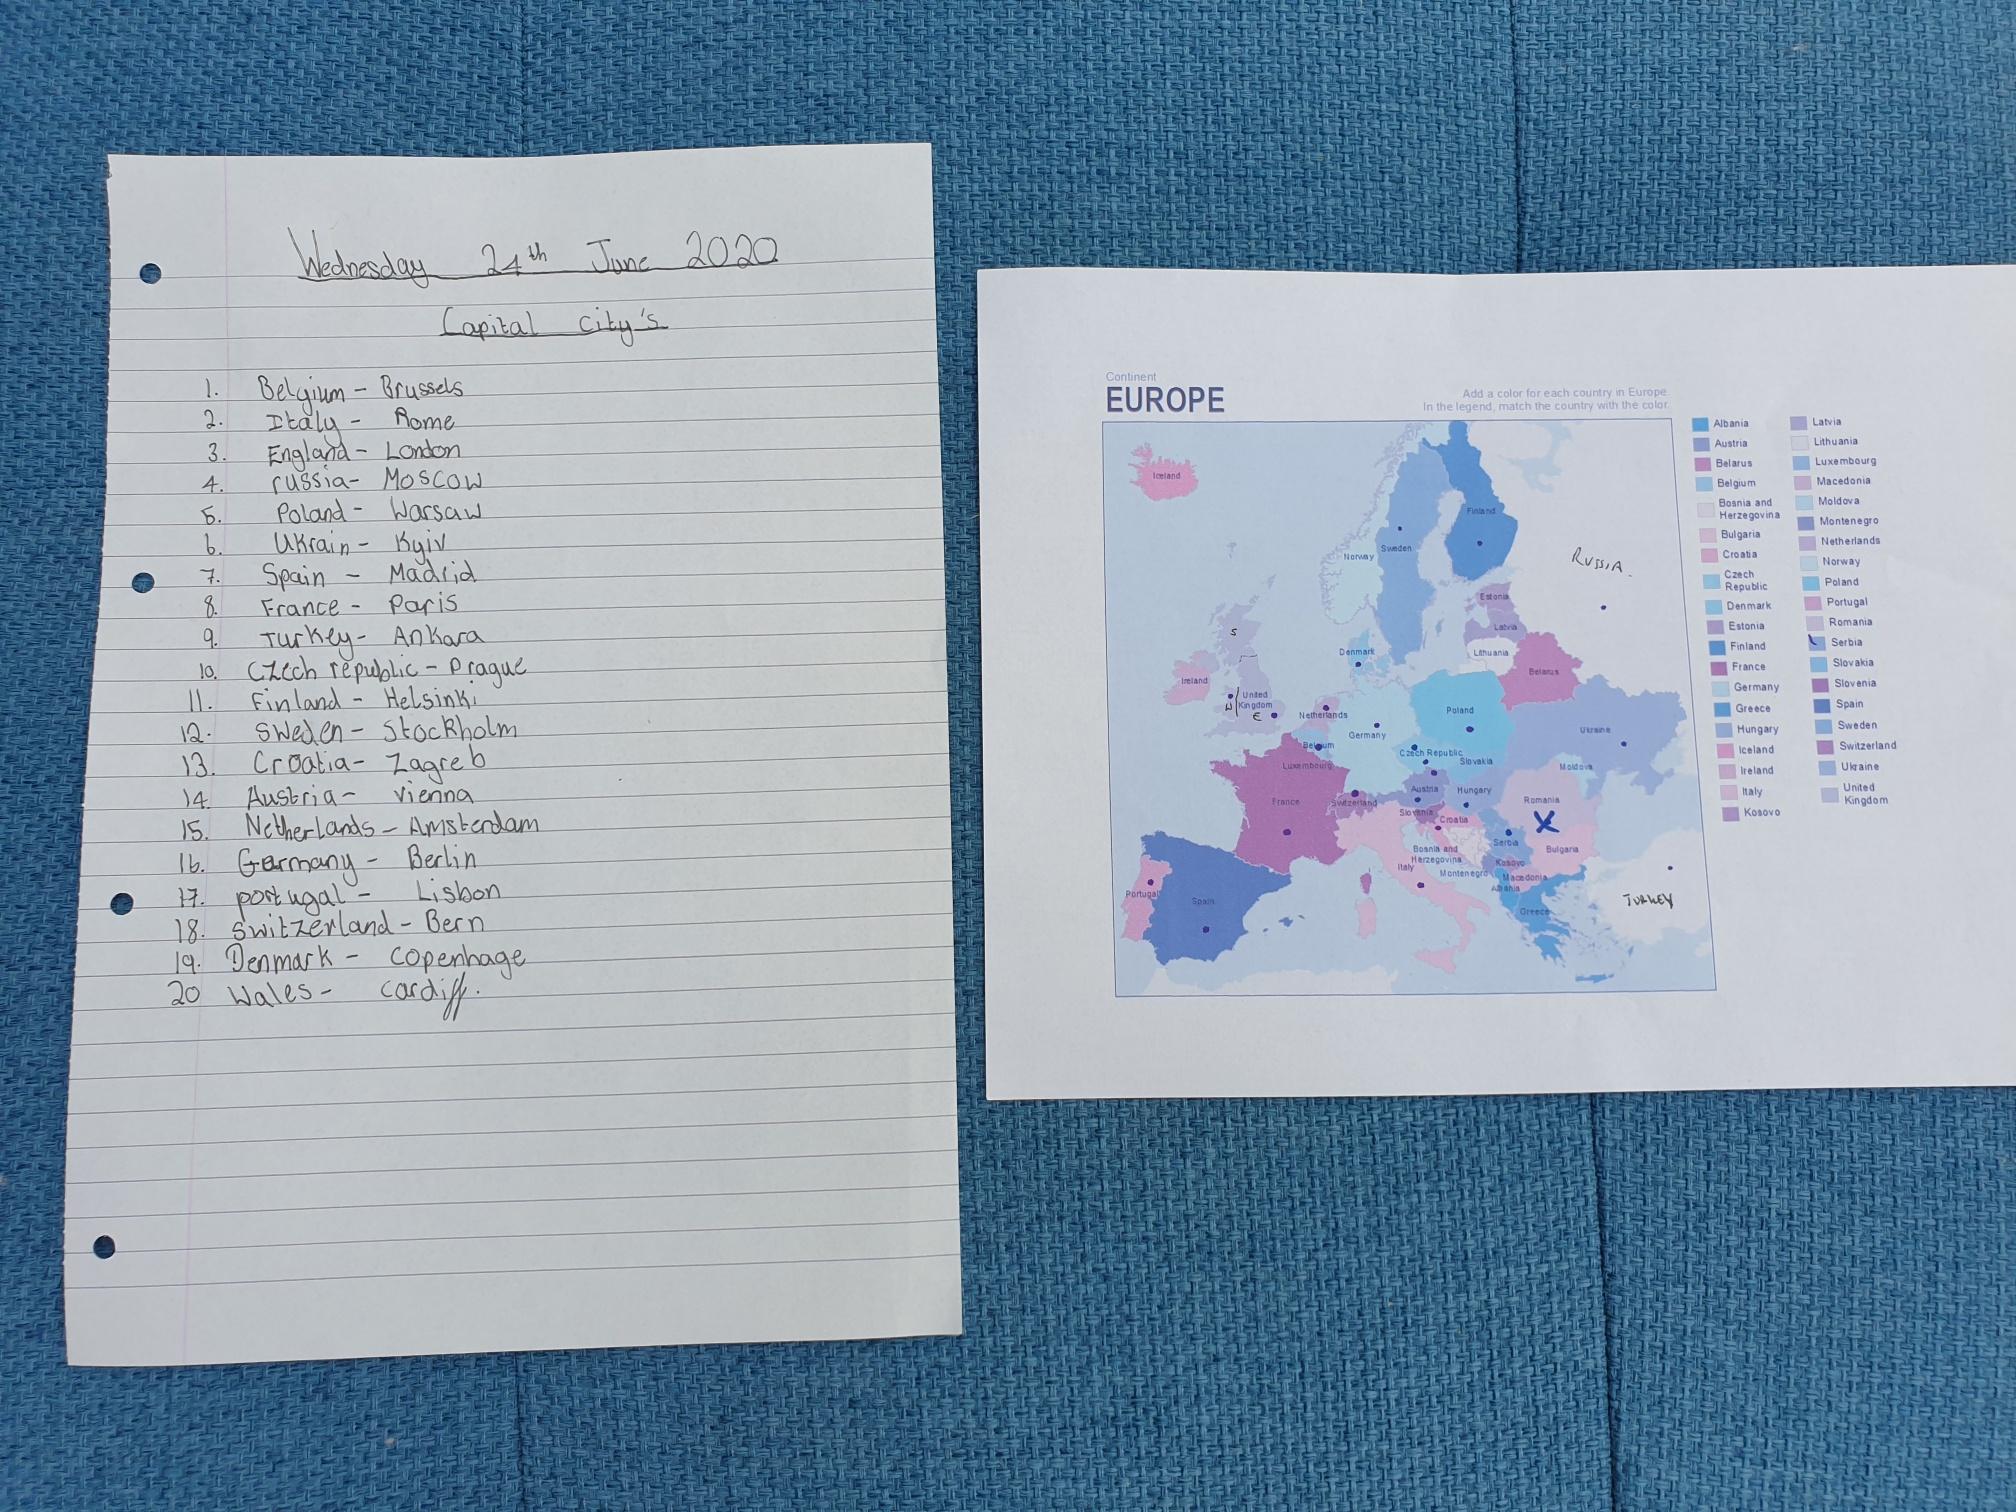 Wednesday 24th June 2020
Capital city's
1. Belgium - Brussels
2. Italy - Rome
3. England - London
4. russia - Moscow
5. Poland - Warsaw
6. Ukrain - Kyiv
7. Spain - Madrid
8. France - Paris
9. Turkey - Ankara
10. Czech republic - Prague
11. Finland - Helsinki
12. Sweden - Stockholm
13. Croatia - Zagreb
14. Austria - vienna
15. Netherlands - Amsterdam
16. Germany - Berlin
17. portugal - Lisbon
18. switzerland - Bern
19. Denmark - Copenhage
20 Wales - cardiff.
Continent
EUROPE
Add a color for each country in Europe.
In the legend, match the country with the color.
Iceland
Finland
Sweden
Norway
RUSSIA.
Estonia
Latvia
S
Lithuania
Denmark
Belarus
Ireland
United
Kingdom
W
E
Netherlands
Poland
Germany
Ukraine
Belgium
Czech Republic
Slovakia
Luxembourg
Moldova
Austria
Hungary
France
Switzerland
Romania
Slovenia
Croatia
X
Serbia
Bosnia and
Herzegovina
Bulgaria
Italy
Kosovo
Montenegro
Macedonia
Albania
Portugal
Spain
TURKEY
Greece
Albania
Austria
Belarus
Belgium
Bosnia and
Herzegovina
Bulgaria
Croatia
Czech
Republic
Denmark
Estonia
Finland
France
Germany
Greece
Hungary
Iceland
Ireland
Italy
Kosovo
Latvia
Lithuania
Luxembourg
Macedonia
Moldova
Montenegro
Netherlands
Norway
Poland
Portugal
Romania
Serbia
Slovakia
Slovenia
Spain
Sweden
Switzerland
Ukraine
United
Kingdom